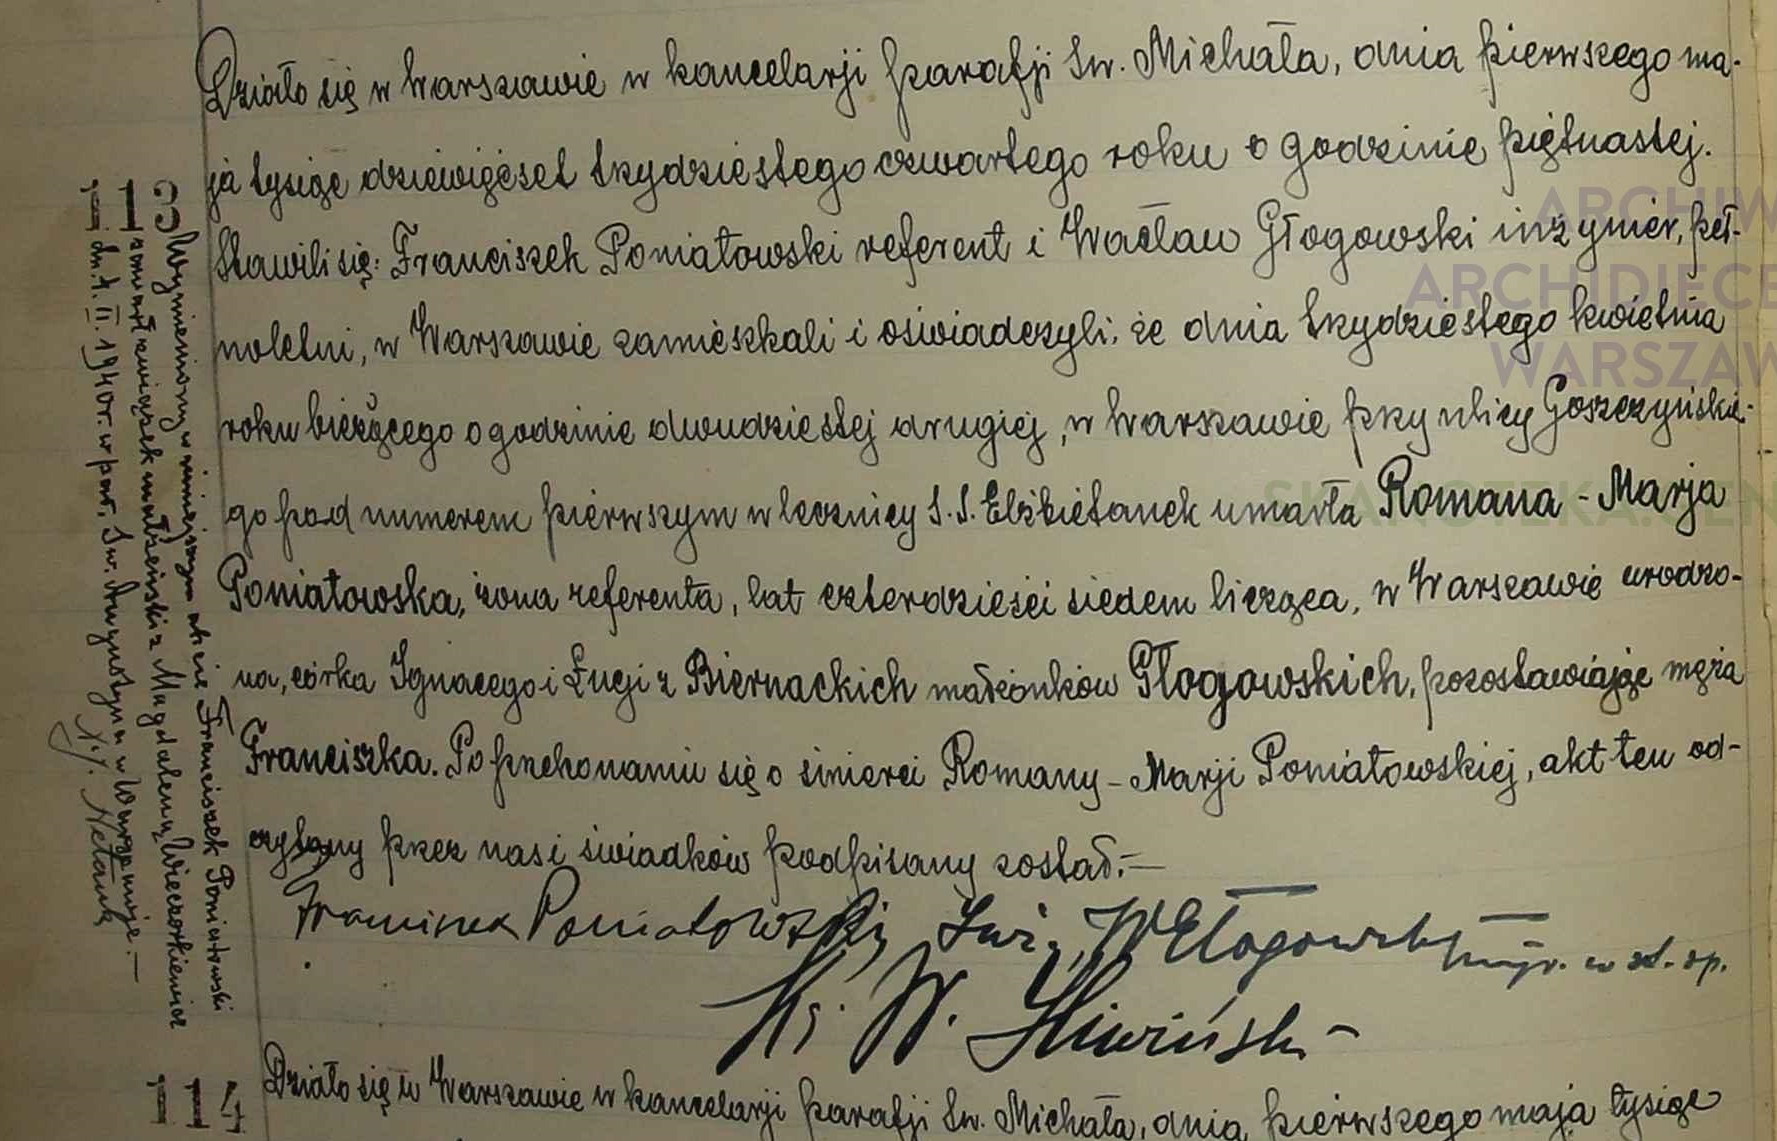 Działo się w Warszawie w kancelarji parafji Św. Michała, dnia pierwszego ma-
ja tysiąc dziewięćset trzydziestego czwartego roku o godzinie piętnastej.
Stawili się: Franciszek Poniatowski referent i Wacław Głogowski inżynier, peł-
noletni, w Warszawie zamieszkali i oświadczyli, że dnia trzydziestego kwietnia
roku bieżącego o godzinie dwudziestej drugiej, w Warszawie przy ulicy Goszczyńskie-
go pod numerem pierwszym w lecznicy S.S. Elżbietanek umarła Romana - Marja
Poniatowska, żona referenta, lat czterdzieści siedem licząca, w Warszawie urodzo-
na, córka Ignacego i Łucji z Biernackich małżonków Głogowskich, pozostawiając męża
Franciszka. Po przekonaniu się o śmierci Romany - Marji Poniatowskiej, akt ten od-
czytany przez nas i świadków podpisany został.-
Franciszek Poniatowski Inż. W Głogowski mjr. w st. sp.
Ks. W.
113
Wymieniony w niniejszym akcie Franciszek Poniatowski
zawarł związek małżeński z Magdaleną Wieczorkiewicz
dn. 4. II. 1940 r. w par. Św. Augustyna w Warszawie.-
114
Działo się w Warszawie w kancelarji parafji Św. Michała, dnia pierwszego maja tysiąc
ARCHIW
ARCHIDIECE
WARSZAW
SKANOTEKA.GEN